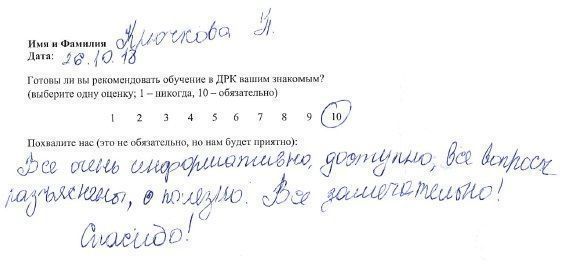 Имя и Фамилия Крючкова Н.
Дата: 26.10.18
Готовы ли вы рекомендовать обучение в ДРК вашим знакомым?
(выберите одну оценку; 1 – никогда, 10 – обязательно)
1 2 3 4 5 6 7 8 9 10
Похвалите нас (это не обязательно, но нам будет приятно):
Все очень информативно, доступно, все вопросы
разъяснены, полезно. Все замечательно!
Спасибо!